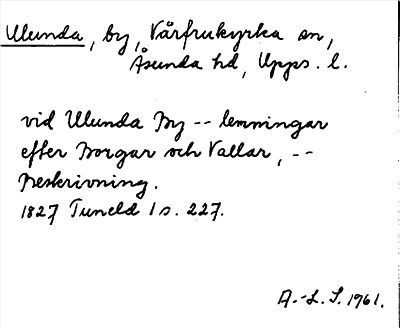 Ulunda, by, Vårfrukyrka sn,
Åsunda hd, Upps. l.
vid Ulunda By -- lemningar
efter Borgar och Vallar, --
Beskrivning.
1827 Tuneld 1 s. 227.
A.-L. S. 1961.